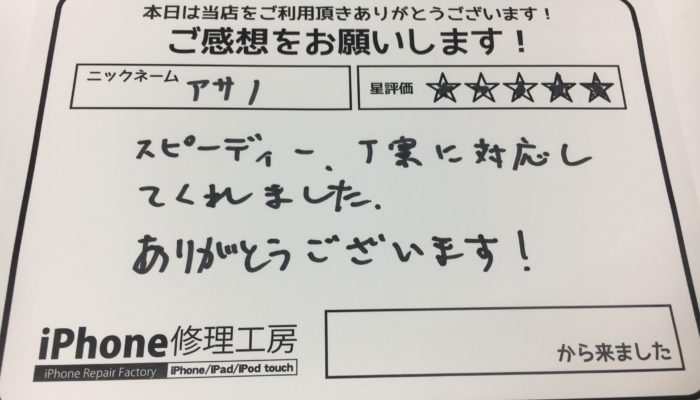 本日は当店をご利用頂きありがとうございます！
ご感想をお願いします！
ニックネーム アサノ
星評価 ★★★★★
スピーディー、丁実に対応し
てくれました。
ありがとうございます！
iPhone修理工房
iPhone Repair Factory iPhone/iPad/iPod touch
から来ました